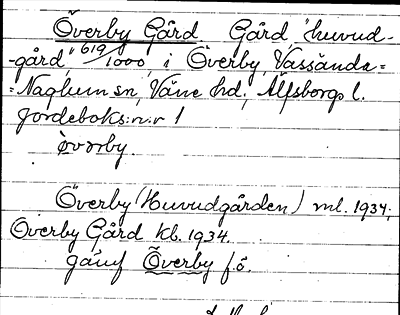 Överby Gård Gård "huvud-
-gård," 619/1000 i Överby, Vassända=
=Naglum sn, Väne hd., Älfsborgs l.
Jordeboks:n:r 1
övərby.
Överby (Huvudgården) ml. 1934;
Överby Gård kb. 1934.
jämf Överby f.ö.